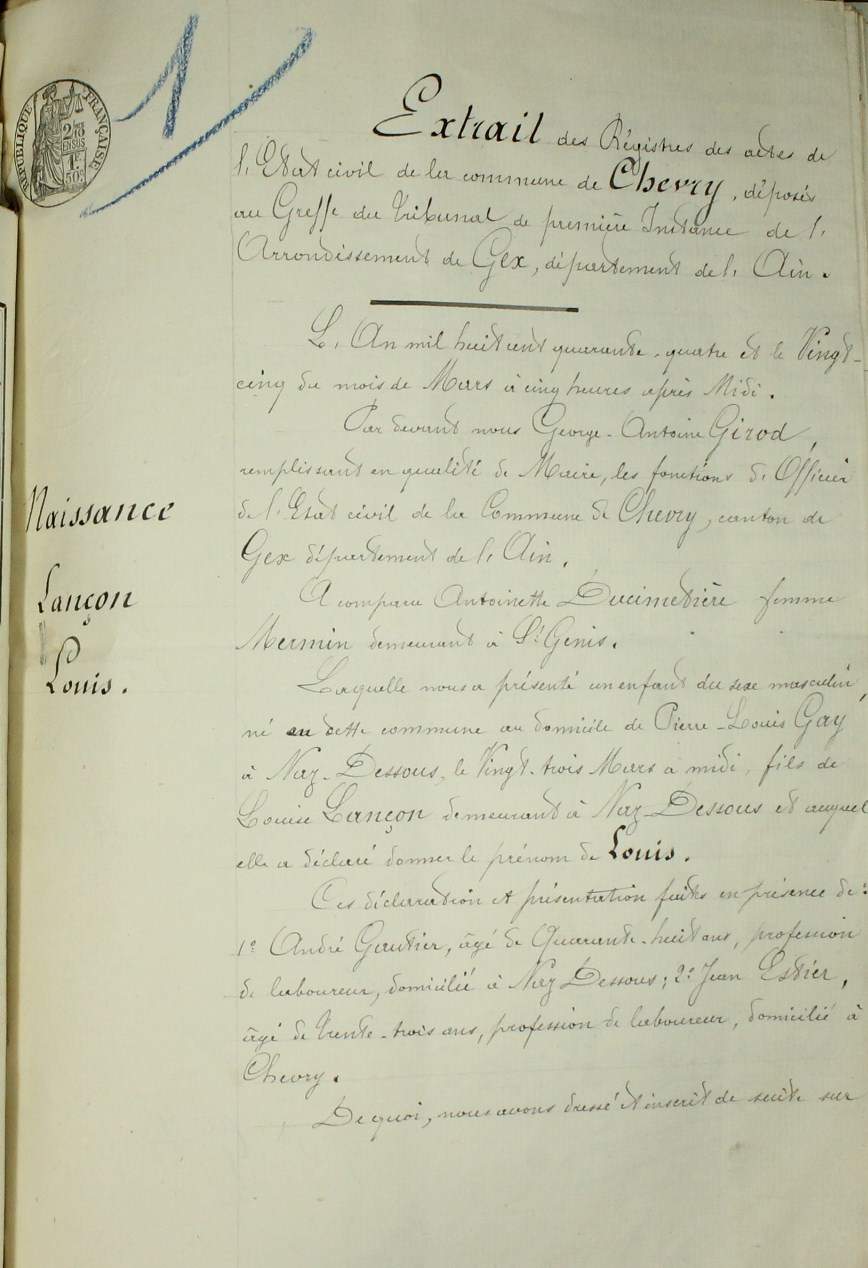 1
RÉPUBLIQUE FRANÇAISE
2/10mes
EN SUS
1F
50c
Extrait des Régistres des actes de
l'Etat civil de la commune de Chevry, déposés
au Greffe du Tribunal de première Instance de l'
Arrondissement de Gex, département de l'Ain.
L'An mil huit cent quarante-quatre et le Vingt-
cinq du mois de Mars à cinq heures après Midi.
Par devant nous George-Antoine Girod,
remplissant en qualité de Maire, les fonctions d'Officier
de l'Etat civil de la Commune de Chevry, canton de
Gex département de l'Ain.
Naissance
Lançon
Louis.
A comparu Antoinette Ducimetière femme
Mermin demeurant à St Genis.
Laquelle nous a présenté un enfant du sexe masculin,
né en cette commune au domicile de Pierre-Louis Gay
à Naz-Dessous, le Vingt-trois Mars à midi, fils de
Louise Lançon demeurant à Naz-Dessous et auquel
elle a déclaré donner le prénom de Louis.
Ces déclaration et présentation faites en présence de:
1º André Gautier, âgé de Quarante-huit ans, profession
de laboureur, domicilié à Naz Dessous; 2º Jean Estier,
âgé de Trente-trois ans, profession de laboureur, domicilié à
Chevry.
De quoi, nous avons dressé et inscrit de suite sur